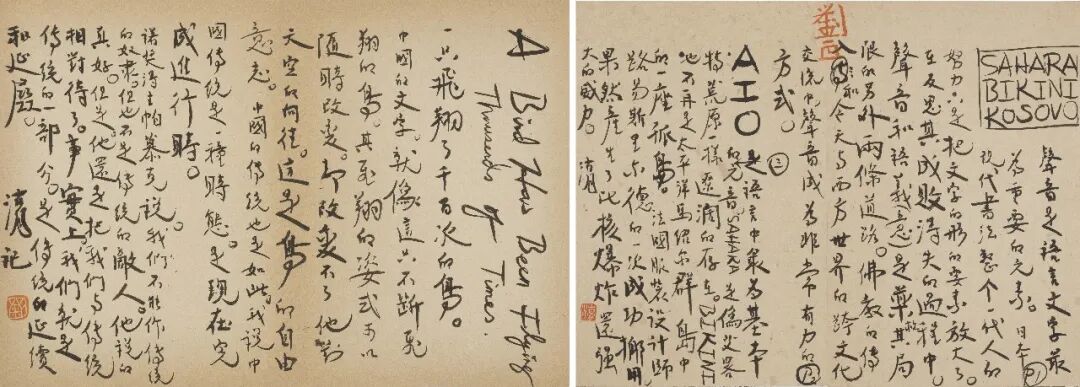 A Bird Has Been Flying
Thousands of Times.
一只飛翔了千百次的鳥。
中國的文字。就像這只不断飛
翔的鳥。其飞翔的姿式可以
隨時改变。却改变不了他對
天空的向往。這是鳥的自由
意志。中國的傳統也是如此。我说中
國傳統是一種時態。是現在完
成進行時。
諾奖得主帕慕克说。我們不能作傳統
的奴隸。但也不是傳統的敵人。他说的
真好。但是他還是把我們与傳統
相對待了。事實上。我們就是
傳統的一部分。是傳統的延續
和延展。
記
SAHARA
BIKINI
KOSOVO
聲音是語言文字最
為重要的元素。日本
現代書法整个一代人的
努力。是把文字的形的要素放大了。
在反思其成敗得失的過程中
聲音和語義。是其局
限的另外两條道路。佛教的傳
入和今天与西方世界的跨文化
交流中聲音成為非常有力的
方式。
AIO是語言中最為基本
的元音。SAHARA是
特荒原樣遼闊的存在。BIKINI
也不再是太平洋馬紹尔群島中
的一座孤島。法國服裝設計師
路易斯里尔德的一次成功挪用
果然產生了比核爆炸還强
大的威力。